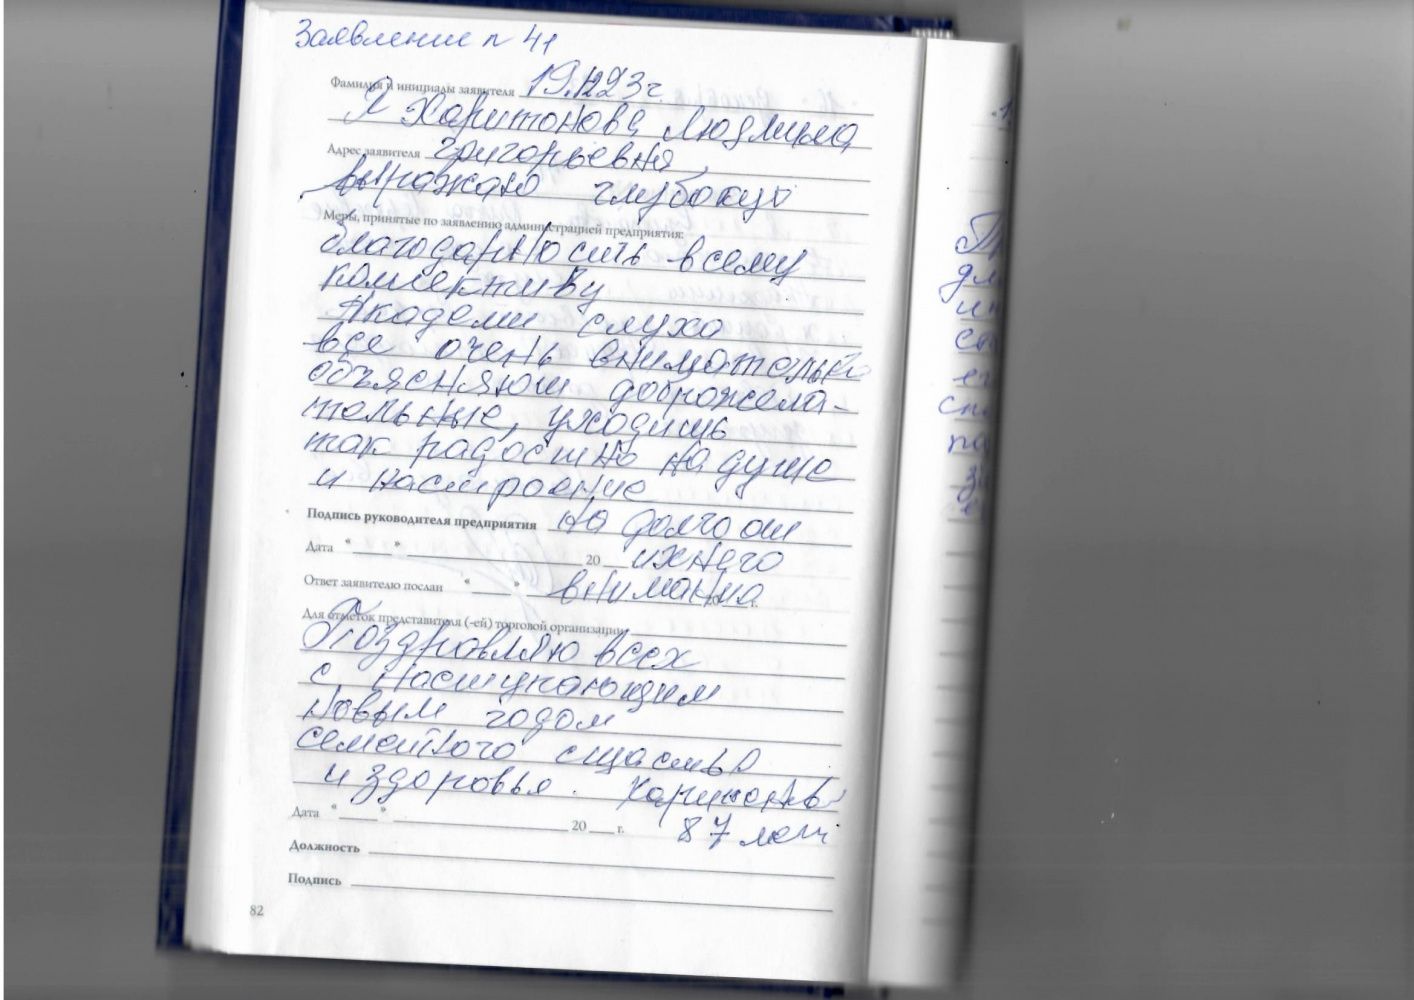 Заявление п 41
Фамилия и инициалы заявителя 19.12.23г
Я Харитонова Людмила
Адрес заявителя Григорьевна,
выражаю глубокую
Меры, принятые по заявлению администрацией предприятия:
благодарность всему
коллективу
Академи слуха
все очень внимательно
объясняют доброжела-
тельные, уходишь
так радостно на душе
и настроение
Подпись руководителя предприятия на долго от
Дата "____" ____ 20 __ ихнего
Ответ заявителю послан "____" внимания г.
Для отметок представителя (-ей) торговой организации
Поздравляю всех
с наступающим
новым годом
семейного счастья
и здоровья. Харитонова
Дата "____" ____ 20 __ г. 87 лет
Должность
Подпись
82
Пр
дл
ин
ег
сп
па